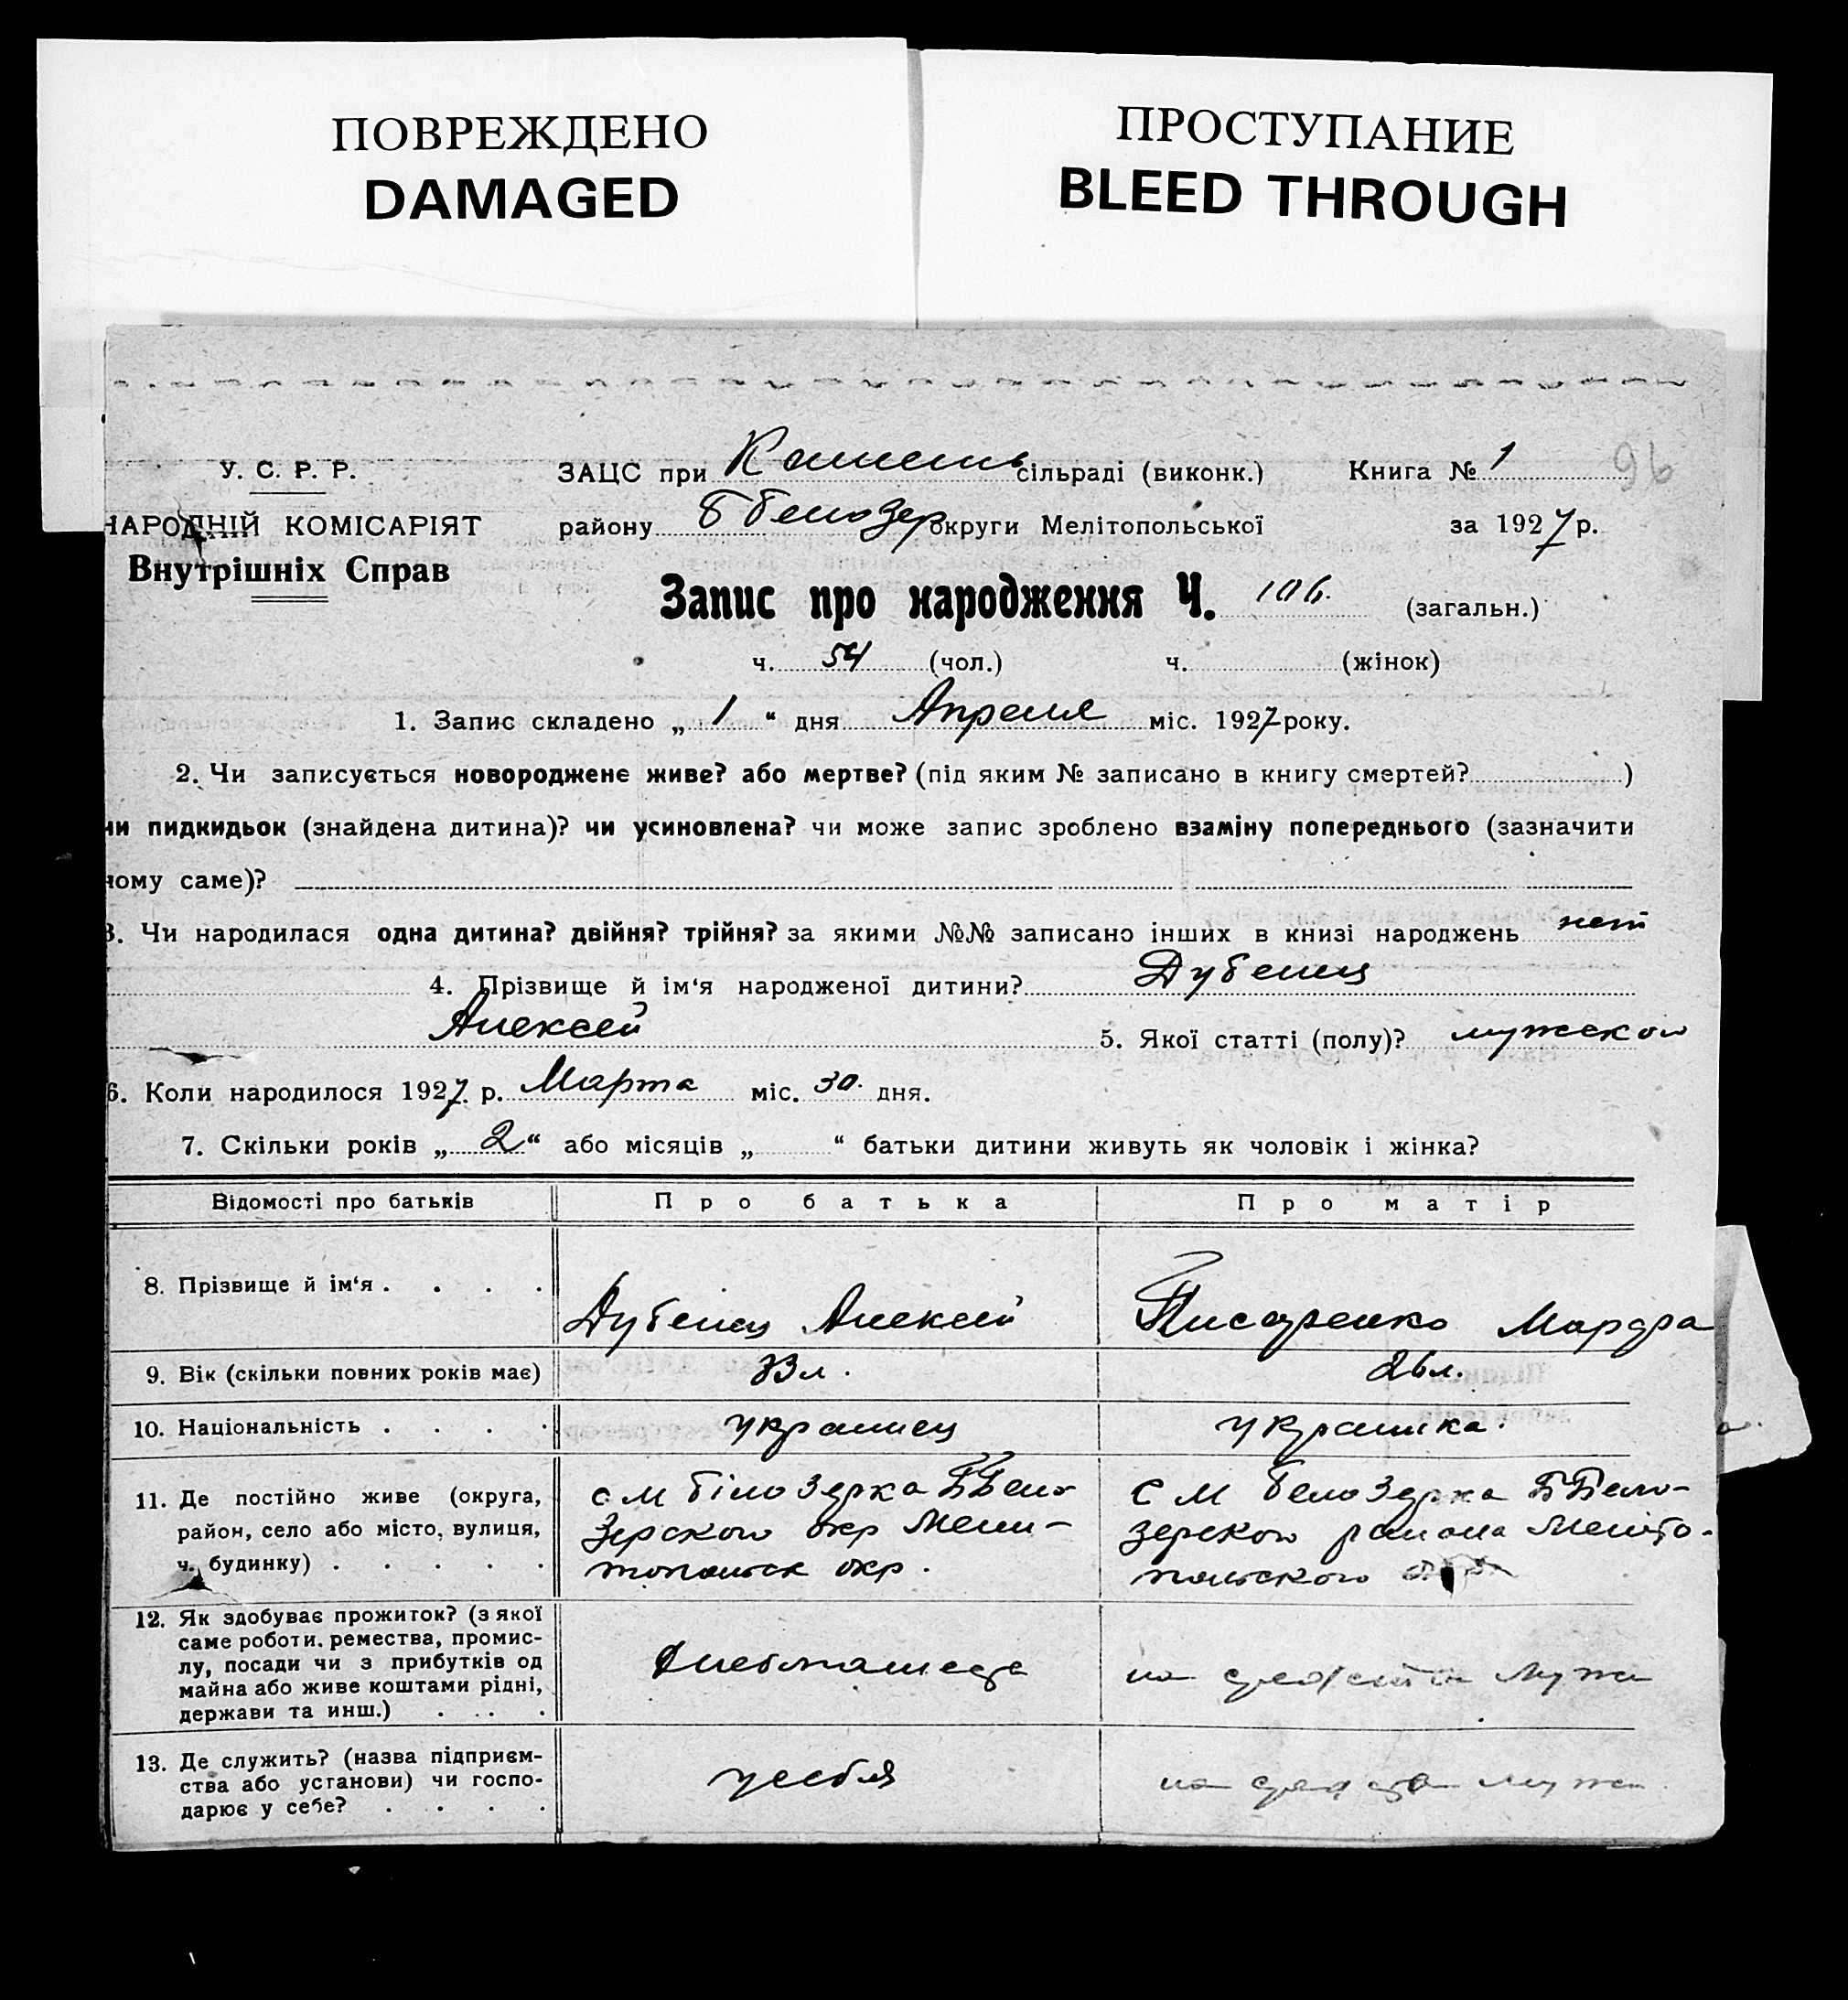 ПОВРЕЖДЕНО
DAMAGED
ПРОСТУПАНИЕ
BLEED THROUGH
У. С. Р. Р.
НАРОДНІЙ КОМІСАРІЯТ
Внутрішніх Справ
ЗАЦС при Камень сільраді (виконк.) Книга № 1 96
району Б Белозер округи Мелітопольської за 1927 р.
Запис про народження Ч. 106. (загальн.)
ч. 54 (чол.) ч. (жінок)
1. Запис складено „ 1 “ дня Апреля міс. 1927 року.
2. Чи записується новороджене живе? або мертве? (під яким № записано в книгу смертей? )
чи пидкидьок (знайдена дитина)? чи усиновлена? чи може запис зроблено взаміну попереднього (зазначити
чому саме)?
3. Чи народилася одна дитина? двійня? трійня? за якими №№ записано інших в книзі народжень нет
4. Прізвище й ім‘я народженої дитини? Дубенец
Алексей 5. Якої статті (полу)? мужского
6. Коли народилося 1927 р. Марта міс. 30. дня.
7. Скільки років „ 2 “ або місяців „ “ батьки дитини живуть як чоловік і жінка?
Відомості про батьків Про батька Про матір
8. Прізвище й ім‘я . . . . Дубенец Алексей Писаренко Марфа
9. Вік (скільки повних років має) 33 л. 26 л.
10. Національність . . . . украинец украинка.
11. Де постійно живе (округа,
район, село або місто, вулиця,
ч. будинку) . . . . .
с М білозерка ББело-
зерского окр Мели-
топольск окр.
с М белозерка ББело-
зерского района Мелито-
польского
12. Як здобуває прожиток? (з якої
саме роботи. ремества, промис-
лу, посади чи з прибутків од
майна або живе коштами рідні,
держави та инш.) . . . .
Хлебопашеца
на средства Мужа
13. Де служить? (назва підприєм-
ства або установи) чи госпо-
дарює у себе? . . . .
у себя
на средства мужа